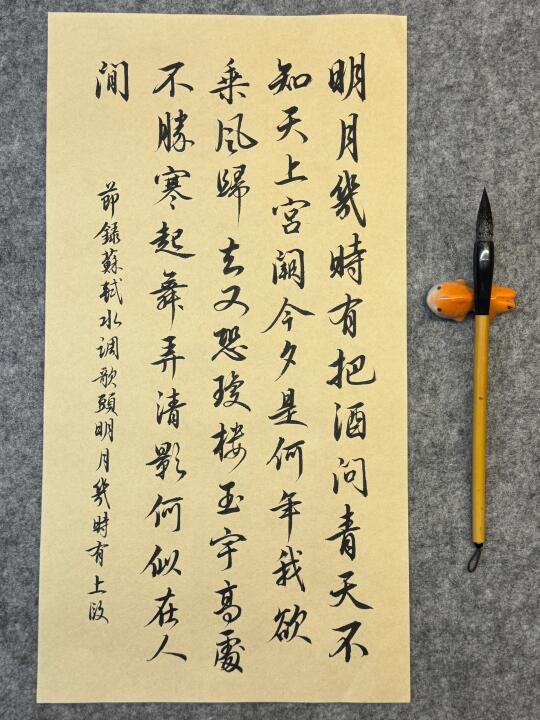 明月幾時有把酒问青天不
知天上宮阙今夕是何年我欲
乘风歸去又恐瓊楼玉宇高處
不勝寒起舞弄清影何似在人
间
节録蘇軾水调歌頭明月幾時有上段